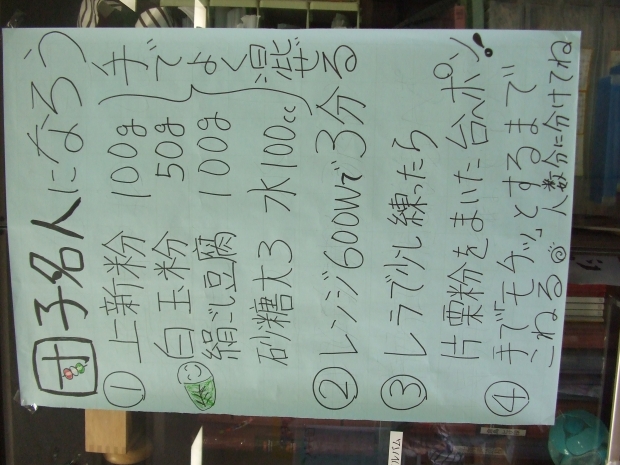 団子名人になろう
① 上新粉 100g
白玉粉 50g
絹ごし豆腐 100g
砂糖大3 水100cc
手でよく混ぜる
② レンジ600Wで3分
③ ヘラで少し練ったら
片栗粉をまいた台へポン!
④ 手で「モチッ」とするまで
こねる◎ 人数分に分けてね
ルバム